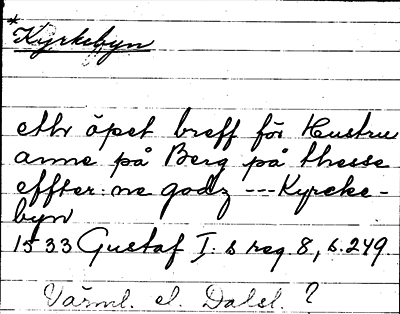 * Kyrkebyn
ettr öpet breff för Hustru
anne på Berg på thesse
effter:ne godz --- Kyrcke-
byn
1533 Gustaf I:s reg. 8, s. 249
Värml. el. Dalsl. ?